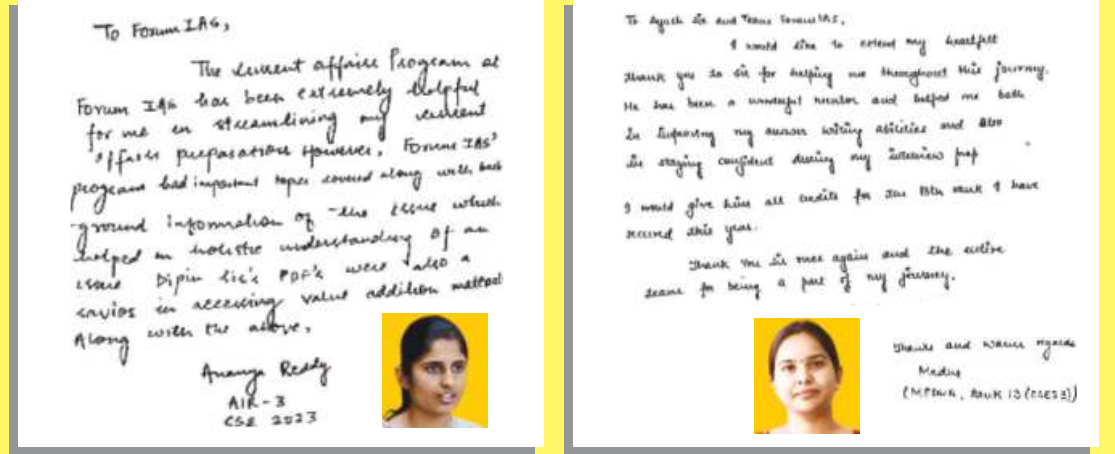 To Forum IAS,
The current affairs Program at
Forum IAS has been extremely helpful
for me in streamlining my current
affairs preparation However, Forum IAS'
program had important topics covered along with back
-ground information of the issue which
helped in holistic understanding of an
issue Dipin Sir's PDF's were also a
savior in accessing value addition material
Along with the above,
Ananya Reddy
AIR-3
CSE 2023
To Ayush Sir and Team ForumIAS,
I would like to extend my heartfelt
thank you to sir for helping me throughout this journey.
He has been a wonderful mentor and helped me both
in improving my answer writing abilities and also
in staying confident during my interview prep
I would give him all credits for the 13th rank I have
secured this year.
Thank you sir once again and the entire
team for being a part of my journey.
Thanks and warm regards
Medha
Rank 13 (CSE23)